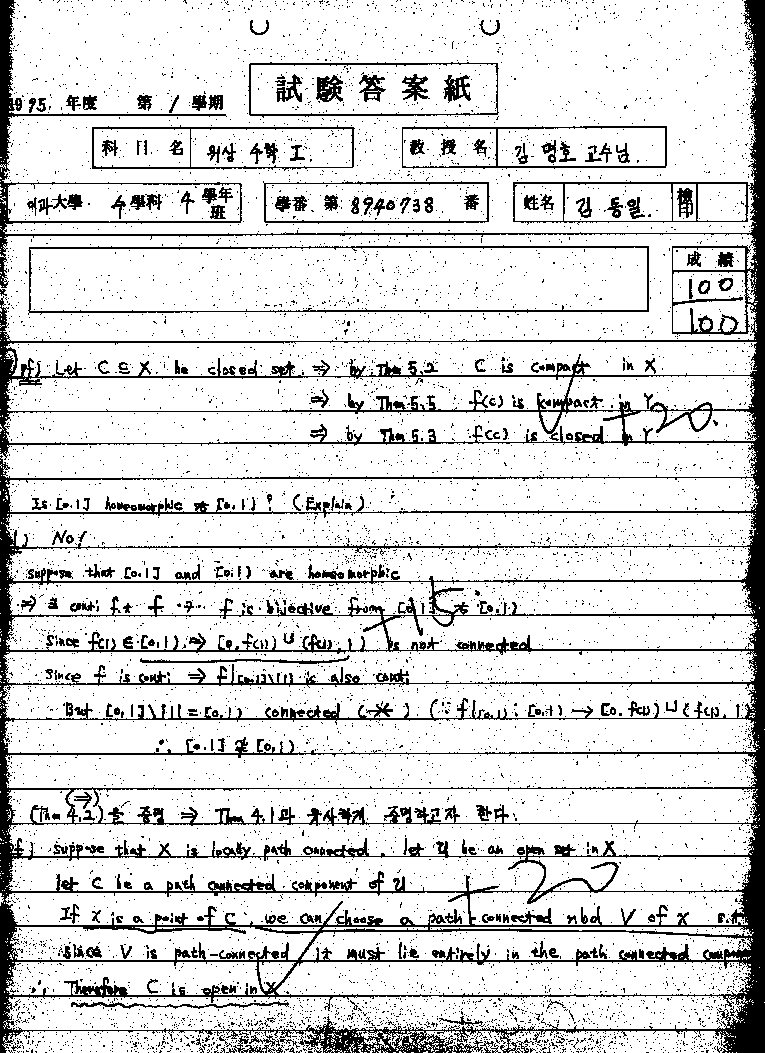 試験答案紙
1995. 年度 第 1 學期
科目名 위상수학 I. 教授名 김명호 교수님
이과大學. 수學科 4 學年班 學番 第 8940738 番 姓名 김동일. 檢印
成績
100
100
pf) Let C ⊆ X be closed set. ⇒ by Thm 5.2 C is compact in X
⇒ by Thm 5.5 f(c) is compact in Y
+20.
⇒ by Thm 5.3 f(c) is closed in Y
Is [0.1] homeomorphic to [0.1)? (Explain)
No!
suppose that [0.1] and [0.1) are homeomorphic
⇒ ∃ conti f.t f ⋅∋⋅ f is bijective from [0.1] to [0.1)
+15
Since f(1) ∈ [0.1) ⇒ [0, f(1)) ∪ (f(1), 1) is not connected
Since f is conti ⇒ f|[0.1]\{1} is also conti
But [0,1]\{1} = [0.1) connected (→←) (∵ f|[0,1) : [0.1) → [0. f(1)) ∪ (f(1), 1)
∴ [0.1] ≇ [0,1)
(⇒)
(Thm 4.2)을 증명 ⇒ Thm 4.1과 유사하게 증명하고자 한다.
pf) suppose that X is locally path connected. let U be an open set in X
let C be a path connected component of U
+20
If x is a point of C, we can choose a path-connected nbd V of x s.t
since V is path-connected it must lie entirely in the path connected
∴ Therefore C is open in X